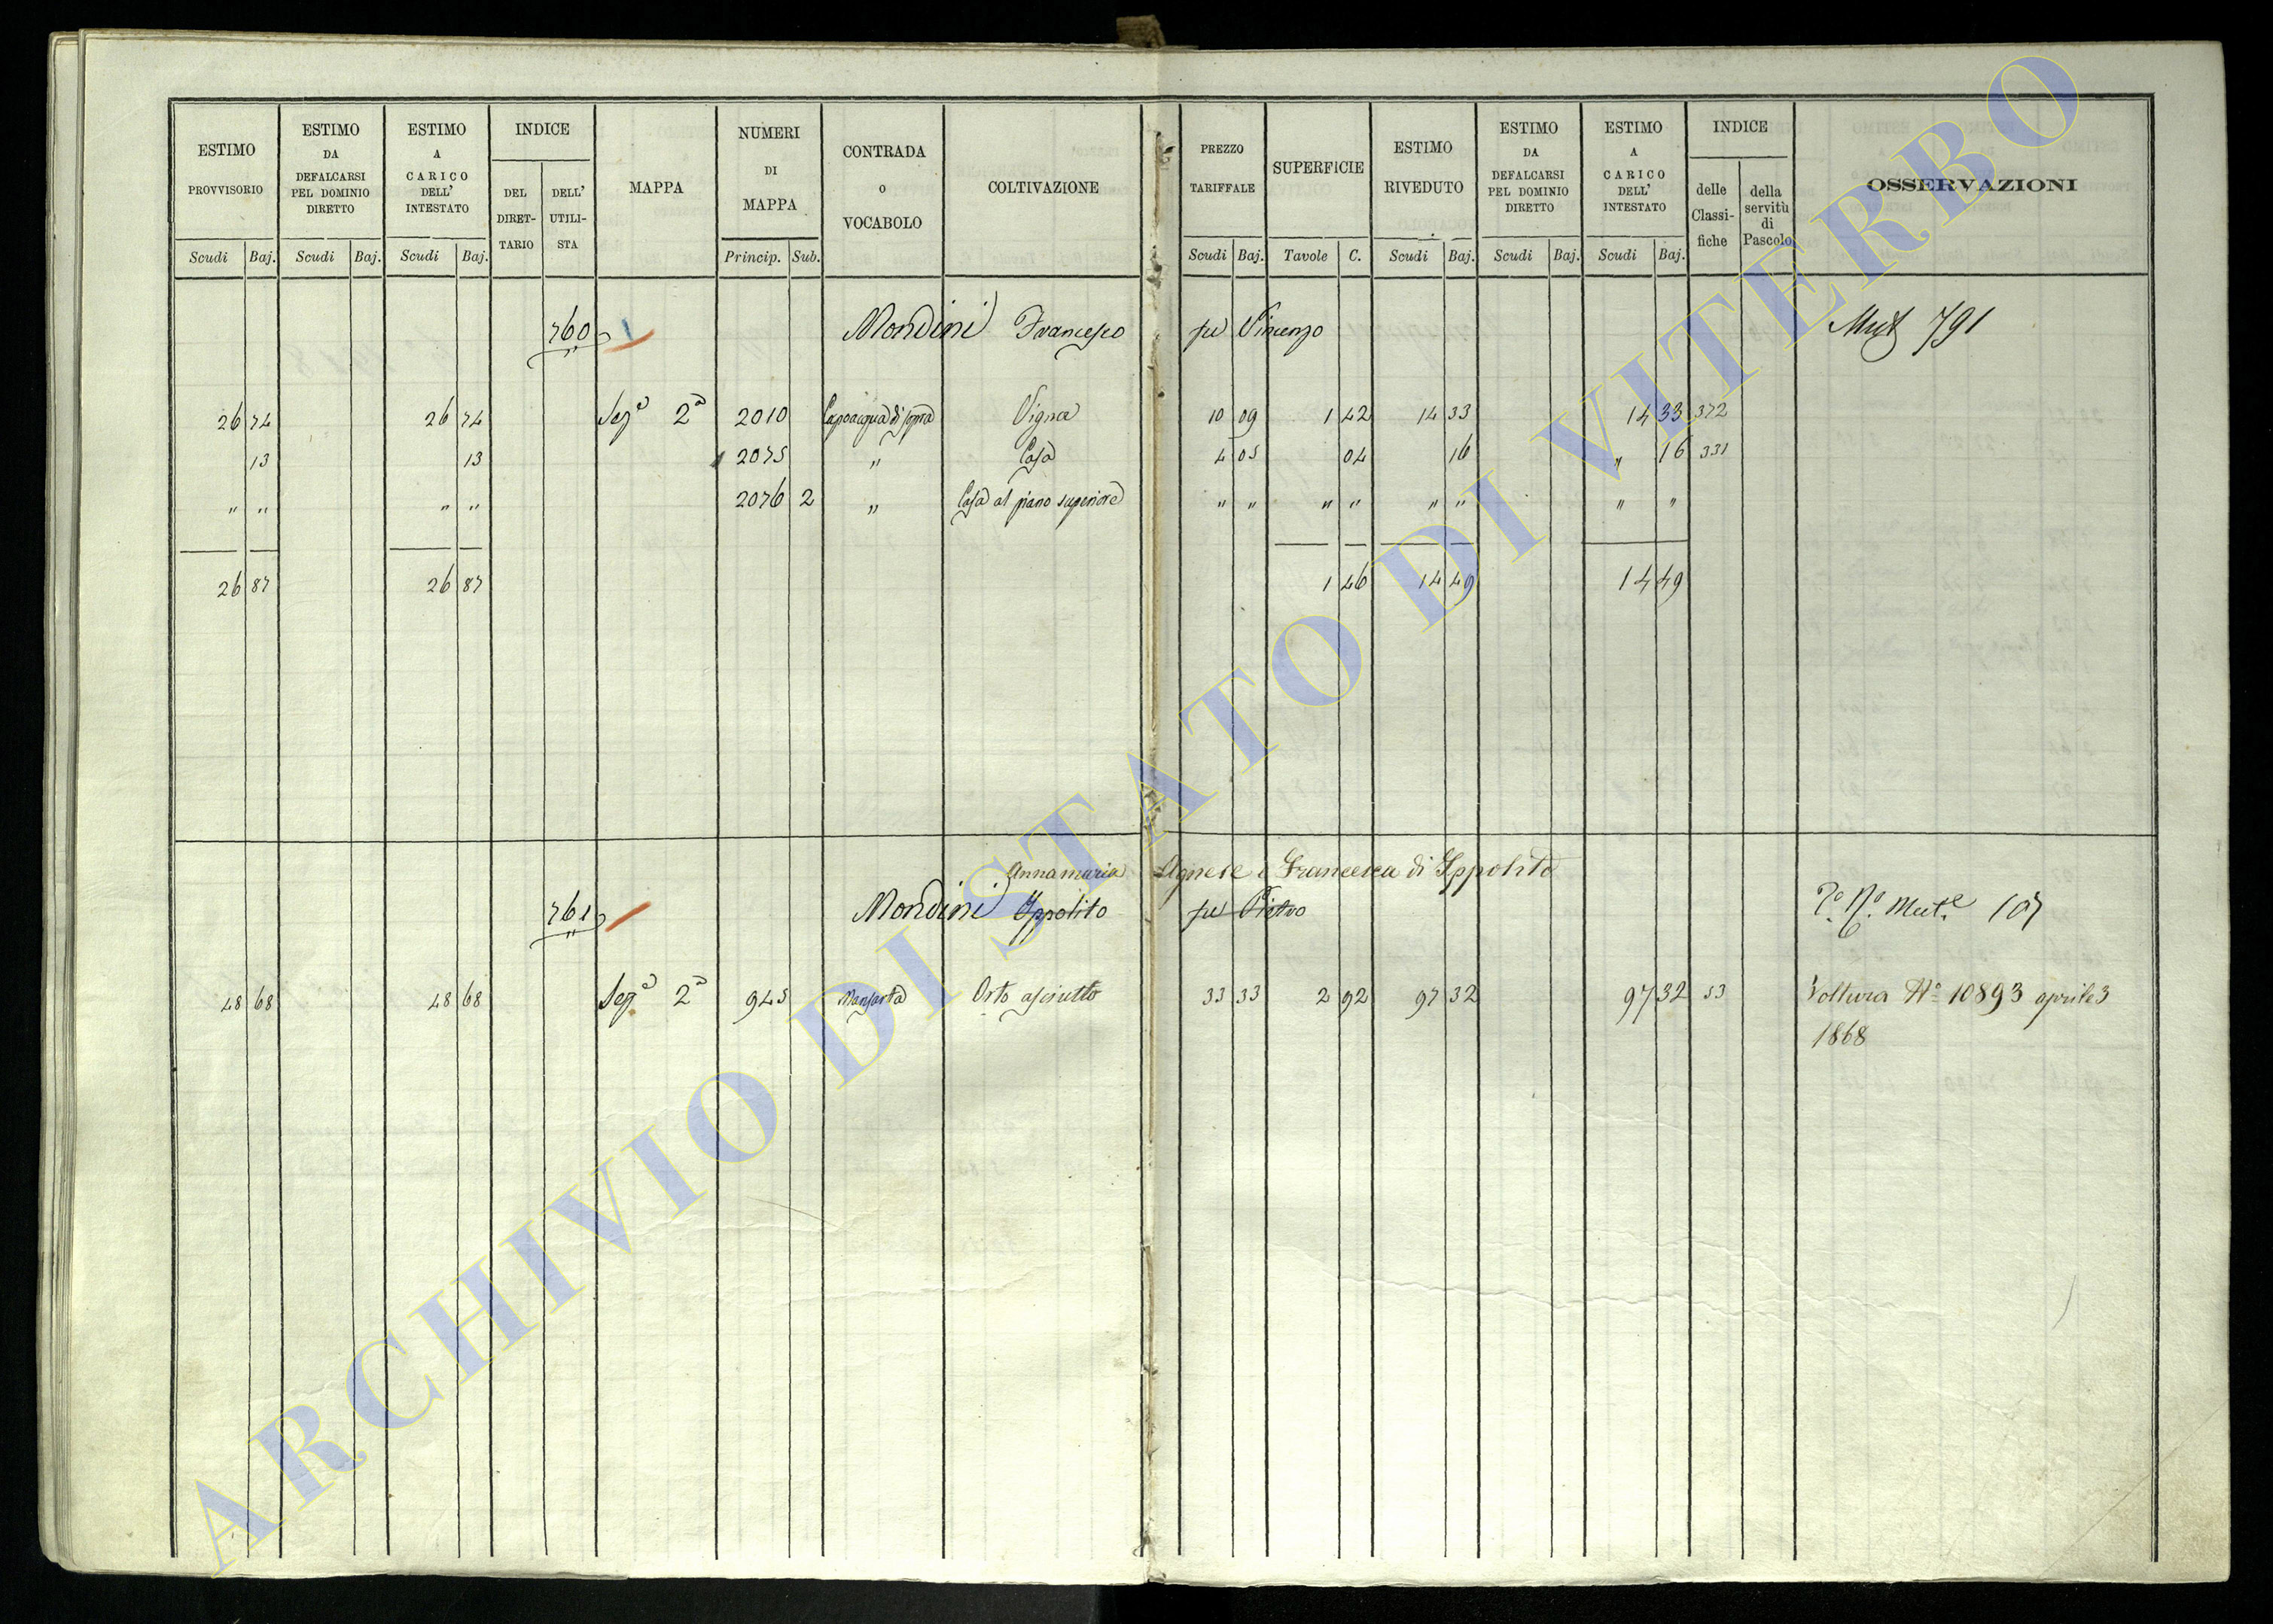 ESTIMO PROVVISORIO Scudi Baj.
ESTIMO DA DEFALCARSI PEL DOMINIO DIRETTO Scudi Baj.
ESTIMO A CARICO DELL' INTESTATO Scudi Baj.
INDICE DEL DIRET- TARIO DELL' UTILI- STA
MAPPA
NUMERI DI MAPPA Princip. Sub.
CONTRADA o VOCABOLO
COLTIVAZIONE
PREZZO TARIFFALE Scudi Baj.
SUPERFICIE Tavole C.
ESTIMO RIVEDUTO Scudi Baj.
ESTIMO DA DEFALCARSI PEL DOMINIO DIRETTO Scudi Baj.
ESTIMO A CARICO DELL' INTESTATO Scudi Baj.
INDICE delle Classi- fiche della servitù di Pascolo
OSSERVAZIONI
760 1 Mondini Francesco fu Vincenzo Mut 791
26 74 26 74 Sez.e 2a 2010 Capoacqua di sopra Vigna 10 09 1 42 14 33 14 33 372
13 13 2075 " Casa 4 05 04 16 " 16 331
" " " " 2076 2 " Casa al piano superiore " " " " " " " "
26 87 26 87 1 46 14 49 14 49
Annamaria Agnese e Francesca di Ippolito
761 Mondini Ippolito fu Pietro Mut.e 107
48 68 48 68 Sez.e 2a 945 Orto asciutto 33 33 2 92 97 32 97 32 53 Voltura No 10893 aprile 3
1868
ARCHIVIO DI STATO DI VITERBO